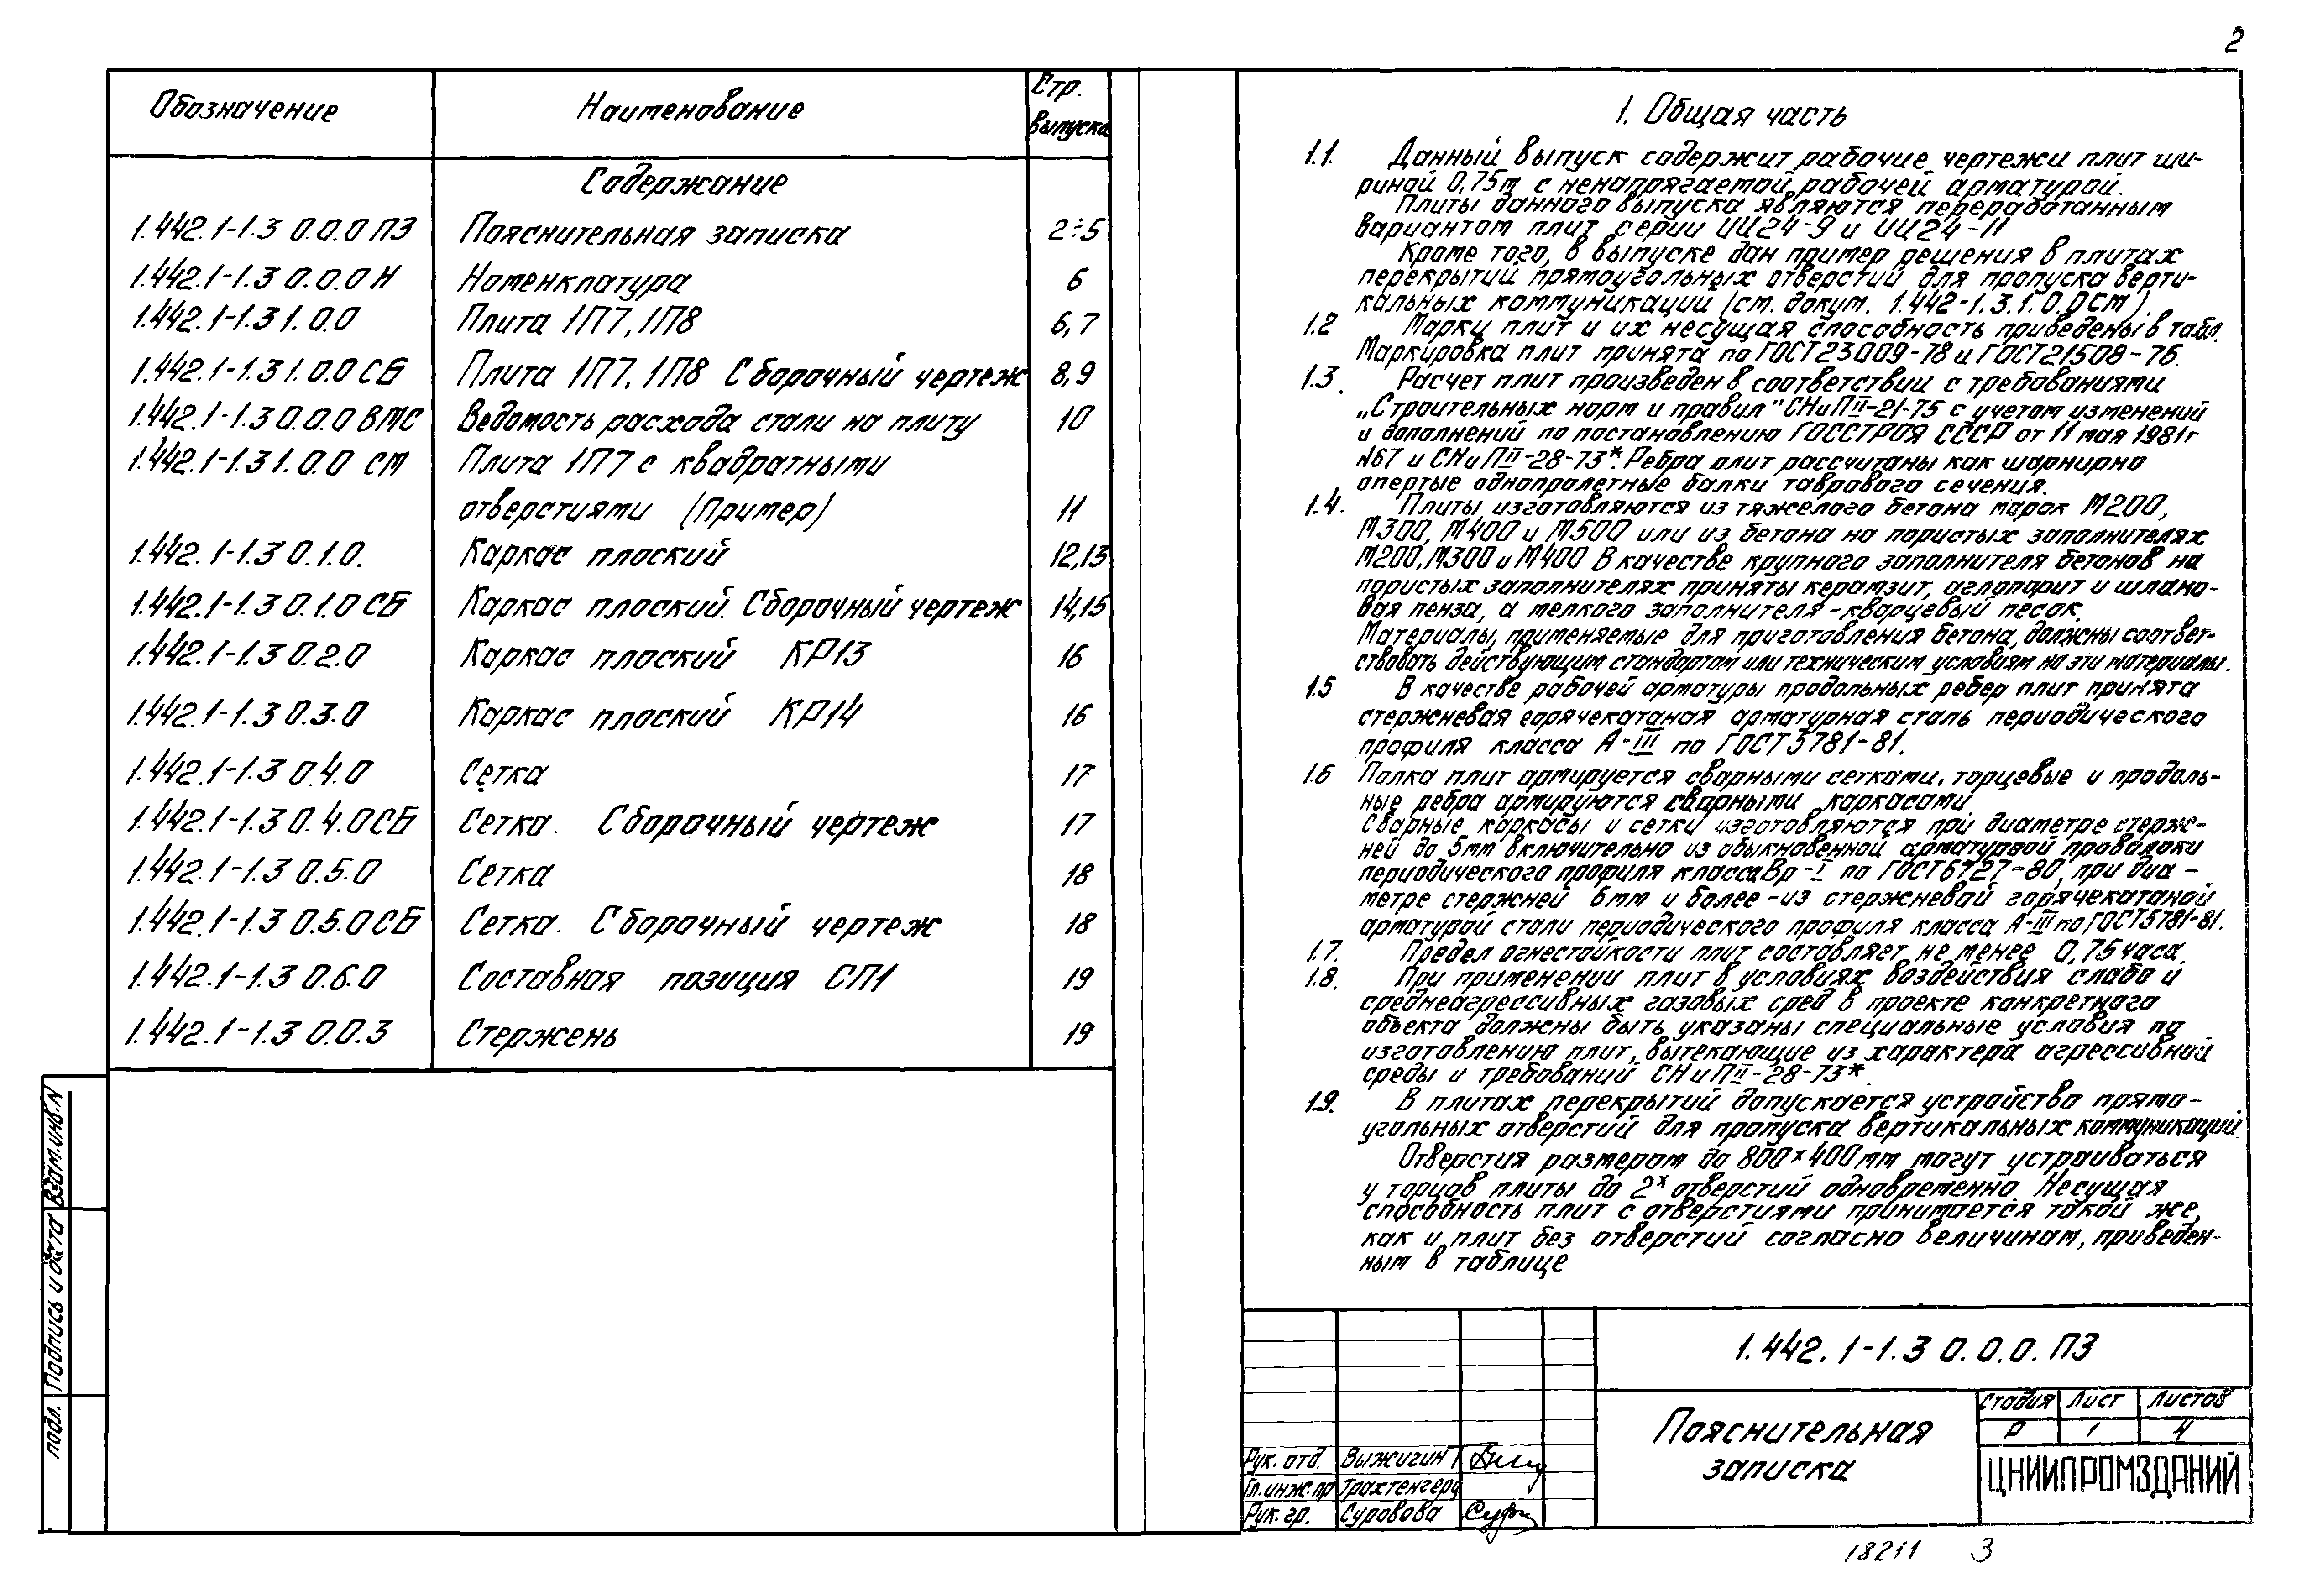 2
Обозначение Наименование Стр. выпуска
Содержание
1.442.1-1.3 0.0.0 ПЗ Пояснительная записка 2÷5
1.442.1-1.3 0.0.0 Н Номенклатура 6
1.442.1-1.3 1.0.0 Плита 1П7, 1П8 6,7
1.442.1-1.3 1.0.0 СБ Плита 1П7, 1П8 Сборочный чертеж 8,9
1.442.1-1.3 0.0.0 ВМС Ведомость расхода стали на плиту 10
1.442.1-1.3 1.0.0 СМ Плита 1П7 с квадратными
отверстиями (Пример) 11
1.442.1-1.3 0.1.0. Каркас плоский 12,13
1.442.1-1.3 0.1.0 СБ Каркас плоский. Сборочный чертеж 14,15
1.442.1-1.3 0.2.0 Каркас плоский КР13 16
1.442.1-1.3 0.3.0 Каркас плоский КР14 16
1.442.1-1.3 0.4.0 Сетка 17
1.442.1-1.3 0.4.0СБ Сетка. Сборочный чертеж 17
1.442.1-1.3 0.5.0 Сетка 18
1.442.1-1.3 0.5.0СБ Сетка. Сборочный чертеж 18
1.442.1-1.3 0.6.0 Составная позиция СП1 19
1.442.1-1.3 0.0.3 Стержень 19
подл. Подпись и дата Взам.инв.N
1. Общая часть
1.1. Данный выпуск содержит рабочие чертежи плит ши-
риной 0,75м с ненапрягаемой рабочей арматурой.
Плиты данного выпуска являются переработанным
вариантом плит серии ИИ24-9 и ИИ24-11
Кроме того, в выпуске дан пример решения в плитах
перекрытий прямоугольных отверстий для пропуска верти-
кальных коммуникаций (см. докум. 1.442-1.3.1.0.0СМ).
1.2 Марки плит и их несущая способность приведены в табл.
Маркировка плит принята по ГОСТ23009-78 и ГОСТ21508-76.
1.3. Расчет плит произведен в соответствии с требованиями
„Строительных норм и правил" СНиПII-21-75 с учетом изменений
и дополнений по постановлению ГОССТРОЯ СССР от 11 мая 1981г
N67 и СНиПII-28-73*. Ребра плит рассчитаны как шарнирно
опертые однопролетные балки таврового сечения.
1.4. Плиты изготовляются из тяжелого бетона марок М200,
М300, М400 и М500 или из бетона на пористых заполнителях
М200, М300 и М400 В качестве крупного заполнителя бетонов на
пористых заполнителях приняты керамзит, аглопорит и шлако-
вая пемза, а мелкого заполнителя - кварцевый песок.
Материалы, применяемые для приготовления бетона, должны соответ-
ствовать действующим стандартам или техническим условиям на эти материалы.
1.5 В качестве рабочей арматуры продольных ребер плит принята
стержневая горячекатаная арматурная сталь периодического
профиля класса А-III по ГОСТ5781-81.
1.6 Полка плит армируется сварными сетками, торцевые и продоль-
ные ребра армируются сварными каркасами.
Сварные каркасы и сетки изготовляются при диаметре стерж-
ней до 5мм включительно из обыкновенной арматурной проволоки
периодического профиля класса Вр-I по ГОСТ6727-80, при диа-
метре стержней 6мм и более - из стержневой горячекатаной
арматурой стали периодического профиля класса А-III по ГОСТ5781-81.
1.7. Предел огнестойкости плит составляет не менее 0,75 часа.
1.8. При применении плит в условиях воздействия слабо и
среднеагрессивных газовых сред в проекте конкретного
объекта должны быть указаны специальные условия по
изготовлению плит, вытекающие из характера агрессивной
среды и требований СНиПII-28-73*.
1.9. В плитах перекрытий допускается устройство прямо-
угольных отверстий для пропуска вертикальных коммуникаций.
Отверстия размером до 800×400мм могут устраиваться
у торцов плиты до 2х отверстий одновременно. Несущая
способность плит с отверстиями принимается такой же,
как и плит без отверстий согласно величинам, приведен-
ным в таблице
1.442.1-1.3 0.0.0.ПЗ
Пояснительная
записка
Стадия Лист Листов
Р 1 4
ЦНИИПРОМЗДАНИЙ
Рук. отд. Выжигин
Гл.инж.пр Трахтенгерц
Рук. гр. Суровова
18211 3